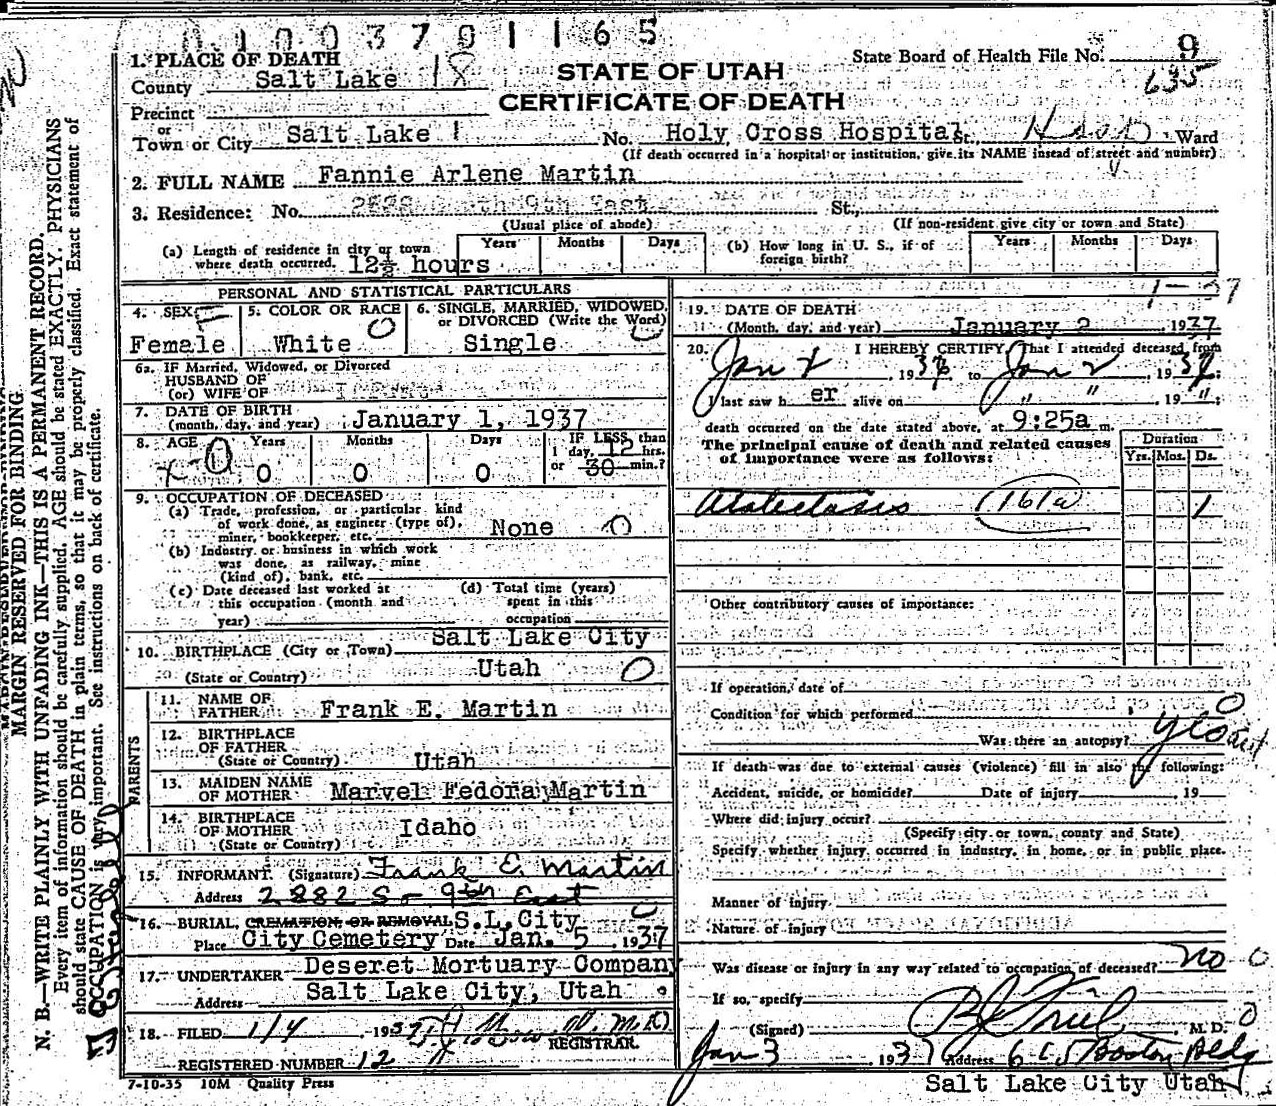 0 1 0 0 3 7 0 1 1 6 5
State Board of Health File No. 9
635
1. PLACE OF DEATH
County Salt Lake 18
STATE OF UTAH
CERTIFICATE OF DEATH
Precinct
or
Town or City Salt Lake 1 No. Holy Cross Hospital St., Ward
(If death occurred in a hospital or institution, give its NAME instead of street and number)
2. FULL NAME Fannie Arlene Martin
3. Residence: No. South 9th East St.,
(Usual place of abode) (If non-resident give city or town and State)
(a) Length of residence in city or town where death occurred. 12½ hours
Years Months Days
(b) How long in U. S., if of foreign birth?
Years Months Days
PERSONAL AND STATISTICAL PARTICULARS
4. SEX Female
5. COLOR OR RACE White
6. SINGLE, MARRIED, WIDOWED, or DIVORCED (Write the Word) Single
6a. IF Married, Widowed, or Divorced
HUSBAND OF
(or) WIFE OF
7. DATE OF BIRTH
(month, day, and year) January 1, 1937
8. AGE Years 0 Months 0 Days 0 IF LESS than 1 day, 12 hrs. or 30 min.?
9. OCCUPATION OF DECEASED
(a) Trade, profession, or particular kind
of work done, as engineer (type of),
miner, bookkeeper, etc. None
(b) Industry or business in which work
was done, as railway, mine
(kind of), bank, etc.
(c) Date deceased last worked at
this occupation (month and
year)
(d) Total time (years)
spent in this
occupation
10. BIRTHPLACE (City or Town) Salt Lake City
(State or Country) Utah
PARENTS
11. NAME OF FATHER Frank E. Martin
12. BIRTHPLACE OF FATHER
(State or Country) Utah
13. MAIDEN NAME OF MOTHER Marvel Fedora Martin
14. BIRTHPLACE OF MOTHER
(State or Country) Idaho
15. INFORMANT. (Signature) Frank E. Martin
Address 2882 So 9th East
16. BURIAL, CREMATION OR REMOVAL S.L. City
Place City Cemetery Date Jan. 5, 1937
17. UNDERTAKER Deseret Mortuary Company
Address Salt Lake City, Utah.
18. FILED 1/4 1937 M.D.
REGISTRAR.
REGISTERED NUMBER 12
7-10-35 10M Quality Press
1-37
19. DATE OF DEATH
(Month, day, and year) January 2, 1937
20. I HEREBY CERTIFY, That I attended deceased from
Jan 2, 1937 to Jan 2, 1937;
I last saw her alive on " " 19 ";
death occurred on the date stated above, at 9:25a m.
The principal cause of death and related causes
of importance were as follows:
Duration
Yrs. Mos. Ds.
Atelectasis (161a) 1
Other contributory causes of importance:
If operation, date of
Condition for which performed
Was there an autopsy? yes
If death was due to external causes (violence) fill in also the following:
Accident, suicide, or homicide? Date of injury 19
Where did injury occur?
(Specify city or town, county and State)
Specify whether injury occurred in industry, in home, or in public place.
Manner of injury
Nature of injury
Was disease or injury in any way related to occupation of deceased? no
If so, specify
(Signed) M. D.
Jan 3 1937 Address 605 Boston Bldg
Salt Lake City Utah
MARGIN RESERVED FOR BINDING
N. B.—WRITE PLAINLY WITH UNFADING INK—THIS IS A PERMANENT RECORD.
Every item of information should be carefully supplied. AGE should be stated EXACTLY. PHYSICIANS
should state CAUSE OF DEATH in plain terms, so that it may be properly classified. Exact statement of
OCCUPATION is very important. See instructions on back of certificate.